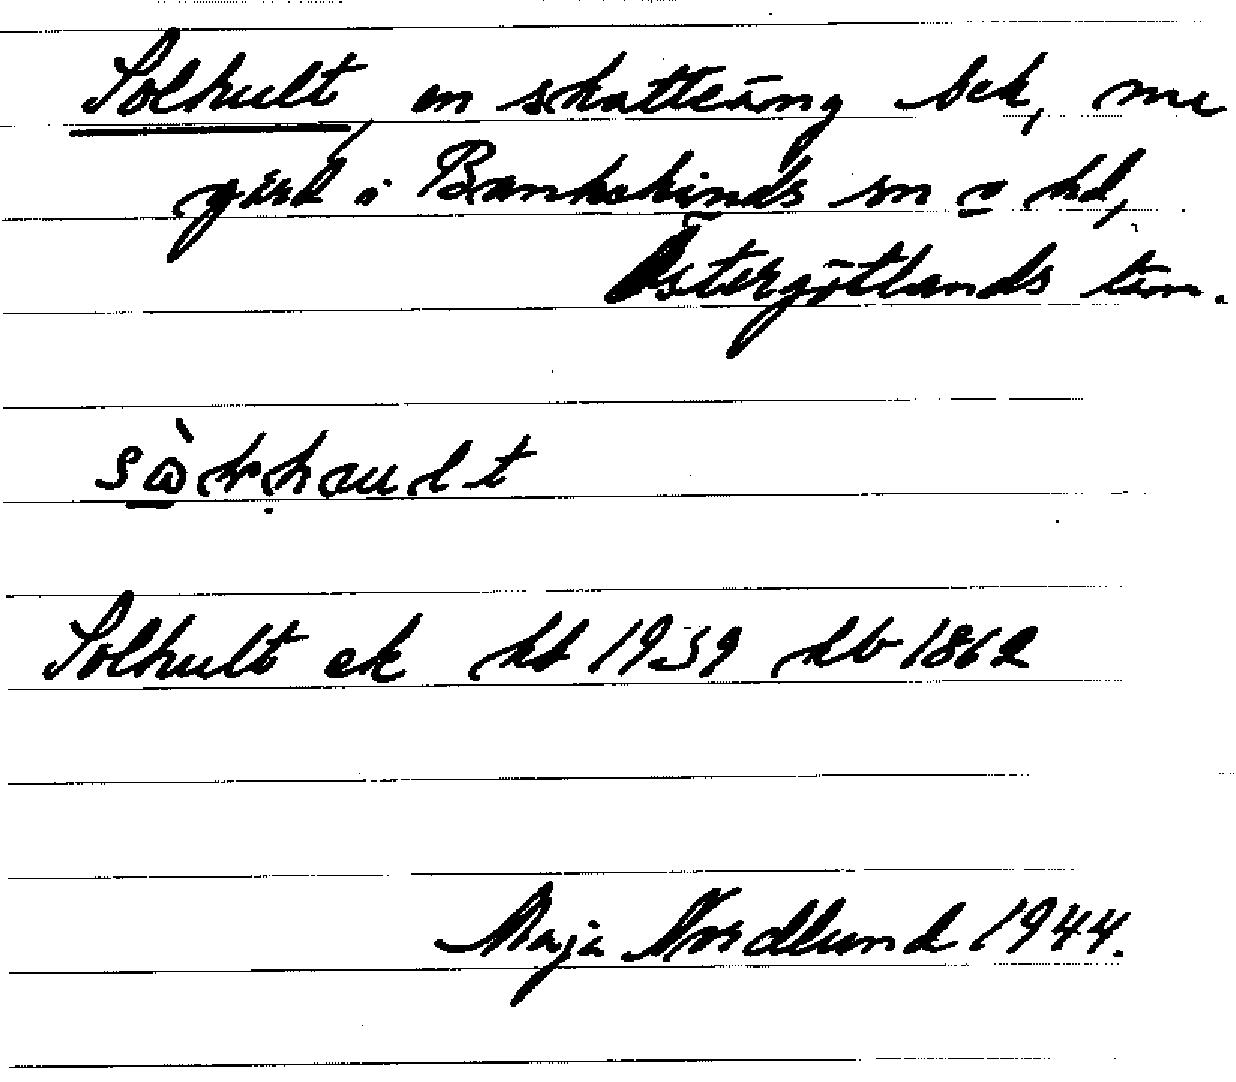 Solhult, en skatteäng Sck, nu
gård i Bankekinds sn o hd,
Östergötlands län.
Solhult ek hd 1939 hb 1862
Maja Nordlund 1944.